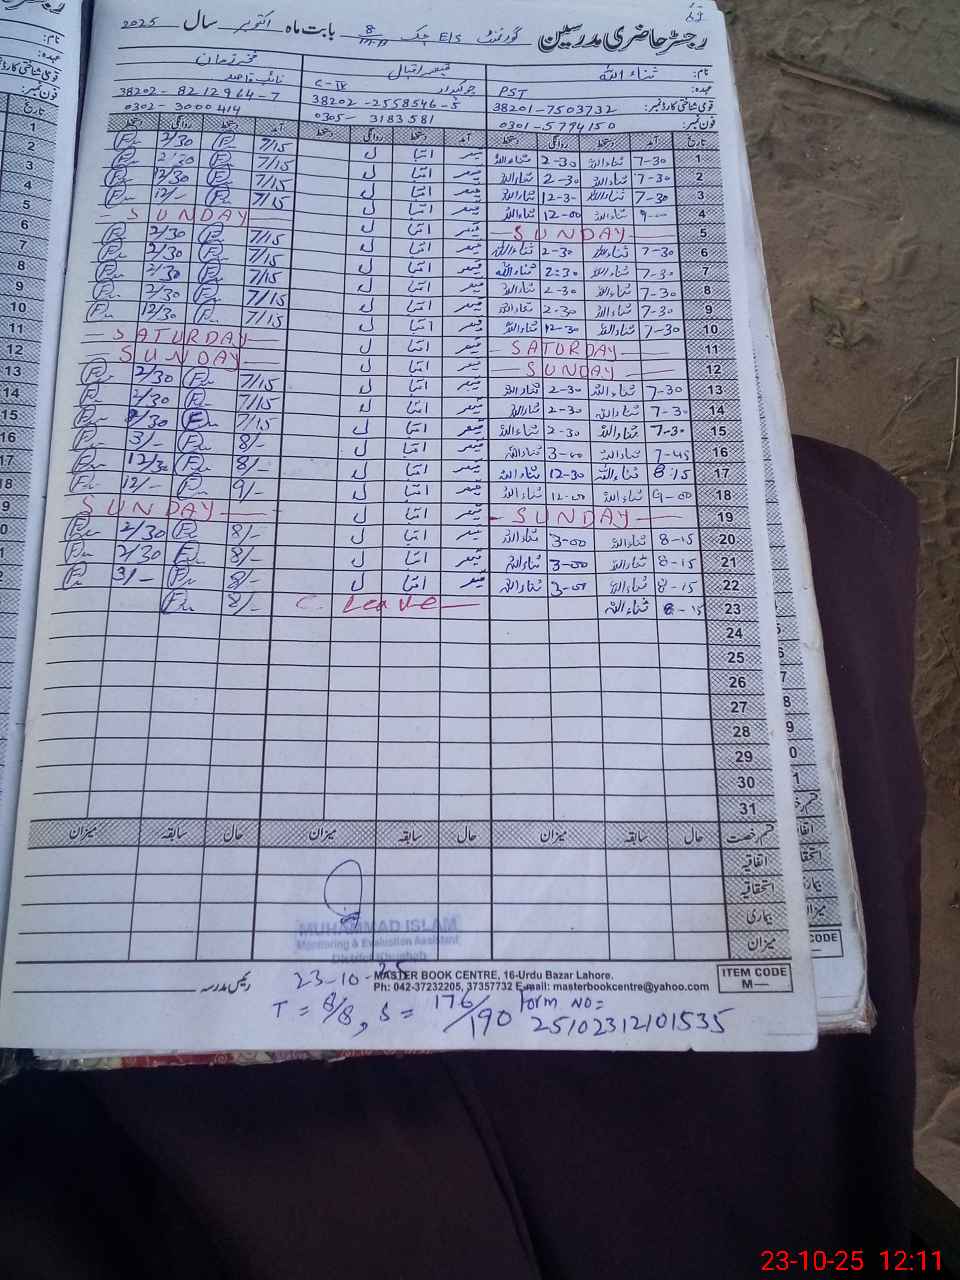 رجسٹر حاضری مدرسین گورنمنٹ E/S چک 8 بابت ماہ اکتوبر سال 2025
نام: ثناء اللہ قیصر اقبال
عہدہ: PST چوکیدار C-IV نائب قاصد
قومی شناختی کارڈ نمبر: 38201-7503732 38202-2558546-5 38202-8212964-7
فون نمبر: 0301-5794150 0305-3183581 0302-3000414
تاریخ آمد دستخط روانگی دستخط آمد دستخط روانگی دستخط آمد دستخط روانگی دستخط
1 7-30 ثناء اللہ 2-30 ثناء اللہ قیصر ل 7/15 2/30
2 7-30 ثناء اللہ 2-30 ثناء اللہ قیصر ل 7/15 2/30
3 7-30 ثناء اللہ 12-30 ثناء اللہ قیصر ل 7/15 12/30
4 9-- ثناء اللہ 12-00 ثناء اللہ قیصر ل 7/15 12/-
5 SUNDAY قیصر ل SUNDAY
6 7-30 ثناء اللہ 2-30 ثناء اللہ قیصر ل 7/15 2/30
7 7-30 ثناء اللہ 2:30 ثناء اللہ قیصر ل 7/15 2/30
8 7-30 ثناء اللہ 2-30 ثناء اللہ قیصر ل 7/15 2/30
9 7-30 ثناء اللہ 2-30 ثناء اللہ قیصر ل 7/15 2/30
10 7-30 ثناء اللہ 12-30 ثناء اللہ قیصر ل 7/15 12/30
11 SATURDAY قیصر ل SATURDAY
12 SUNDAY قیصر ل SUNDAY
13 7-30 ثناء اللہ 2-30 ثناء اللہ قیصر ل 7/15 2/30
14 7-30 ثناء اللہ 2-30 ثناء اللہ قیصر ل 7/15 2/30
15 7-30 ثناء اللہ 2-30 ثناء اللہ قیصر ل 7/15 2/30
16 7-45 ثناء اللہ 3-00 ثناء اللہ قیصر ل 8/- 3/-
17 8:15 ثناء اللہ 12-30 ثناء اللہ قیصر ل 8/- 12/30
18 9-00 ثناء اللہ 12-00 ثناء اللہ قیصر ل 9/- 12/-
19 SUNDAY قیصر ل SUNDAY
20 8-15 ثناء اللہ 3-00 ثناء اللہ قیصر ل 8/- 2/30
21 8-15 ثناء اللہ 3-00 ثناء اللہ قیصر ل 8/- 2/30
22 8-15 ثناء اللہ 3-00 ثناء اللہ قیصر ل 8/- 3/-
23 8-15 ثناء اللہ C. Leave 8/-
24
25
26
27
28
29
30
31
قسم رخصت حال سابقہ میزان حال سابقہ میزان حال سابقہ میزان
اتفاقیہ
استحقاقیہ
بیماری
میزان
MUHAMMAD ISLAM
Monitoring & Evaluation Assistant
District Khushab
23-10-25
رئیس مدرسہ
MASTER BOOK CENTRE, 16-Urdu Bazar Lahore.
Ph: 042-37232205, 37357732 E-mail: masterbookcentre@yahoo.com
ITEM CODE
M—
T = 8/8, S = 176/190 form NO = 25102312101535
23-10-25 12:11